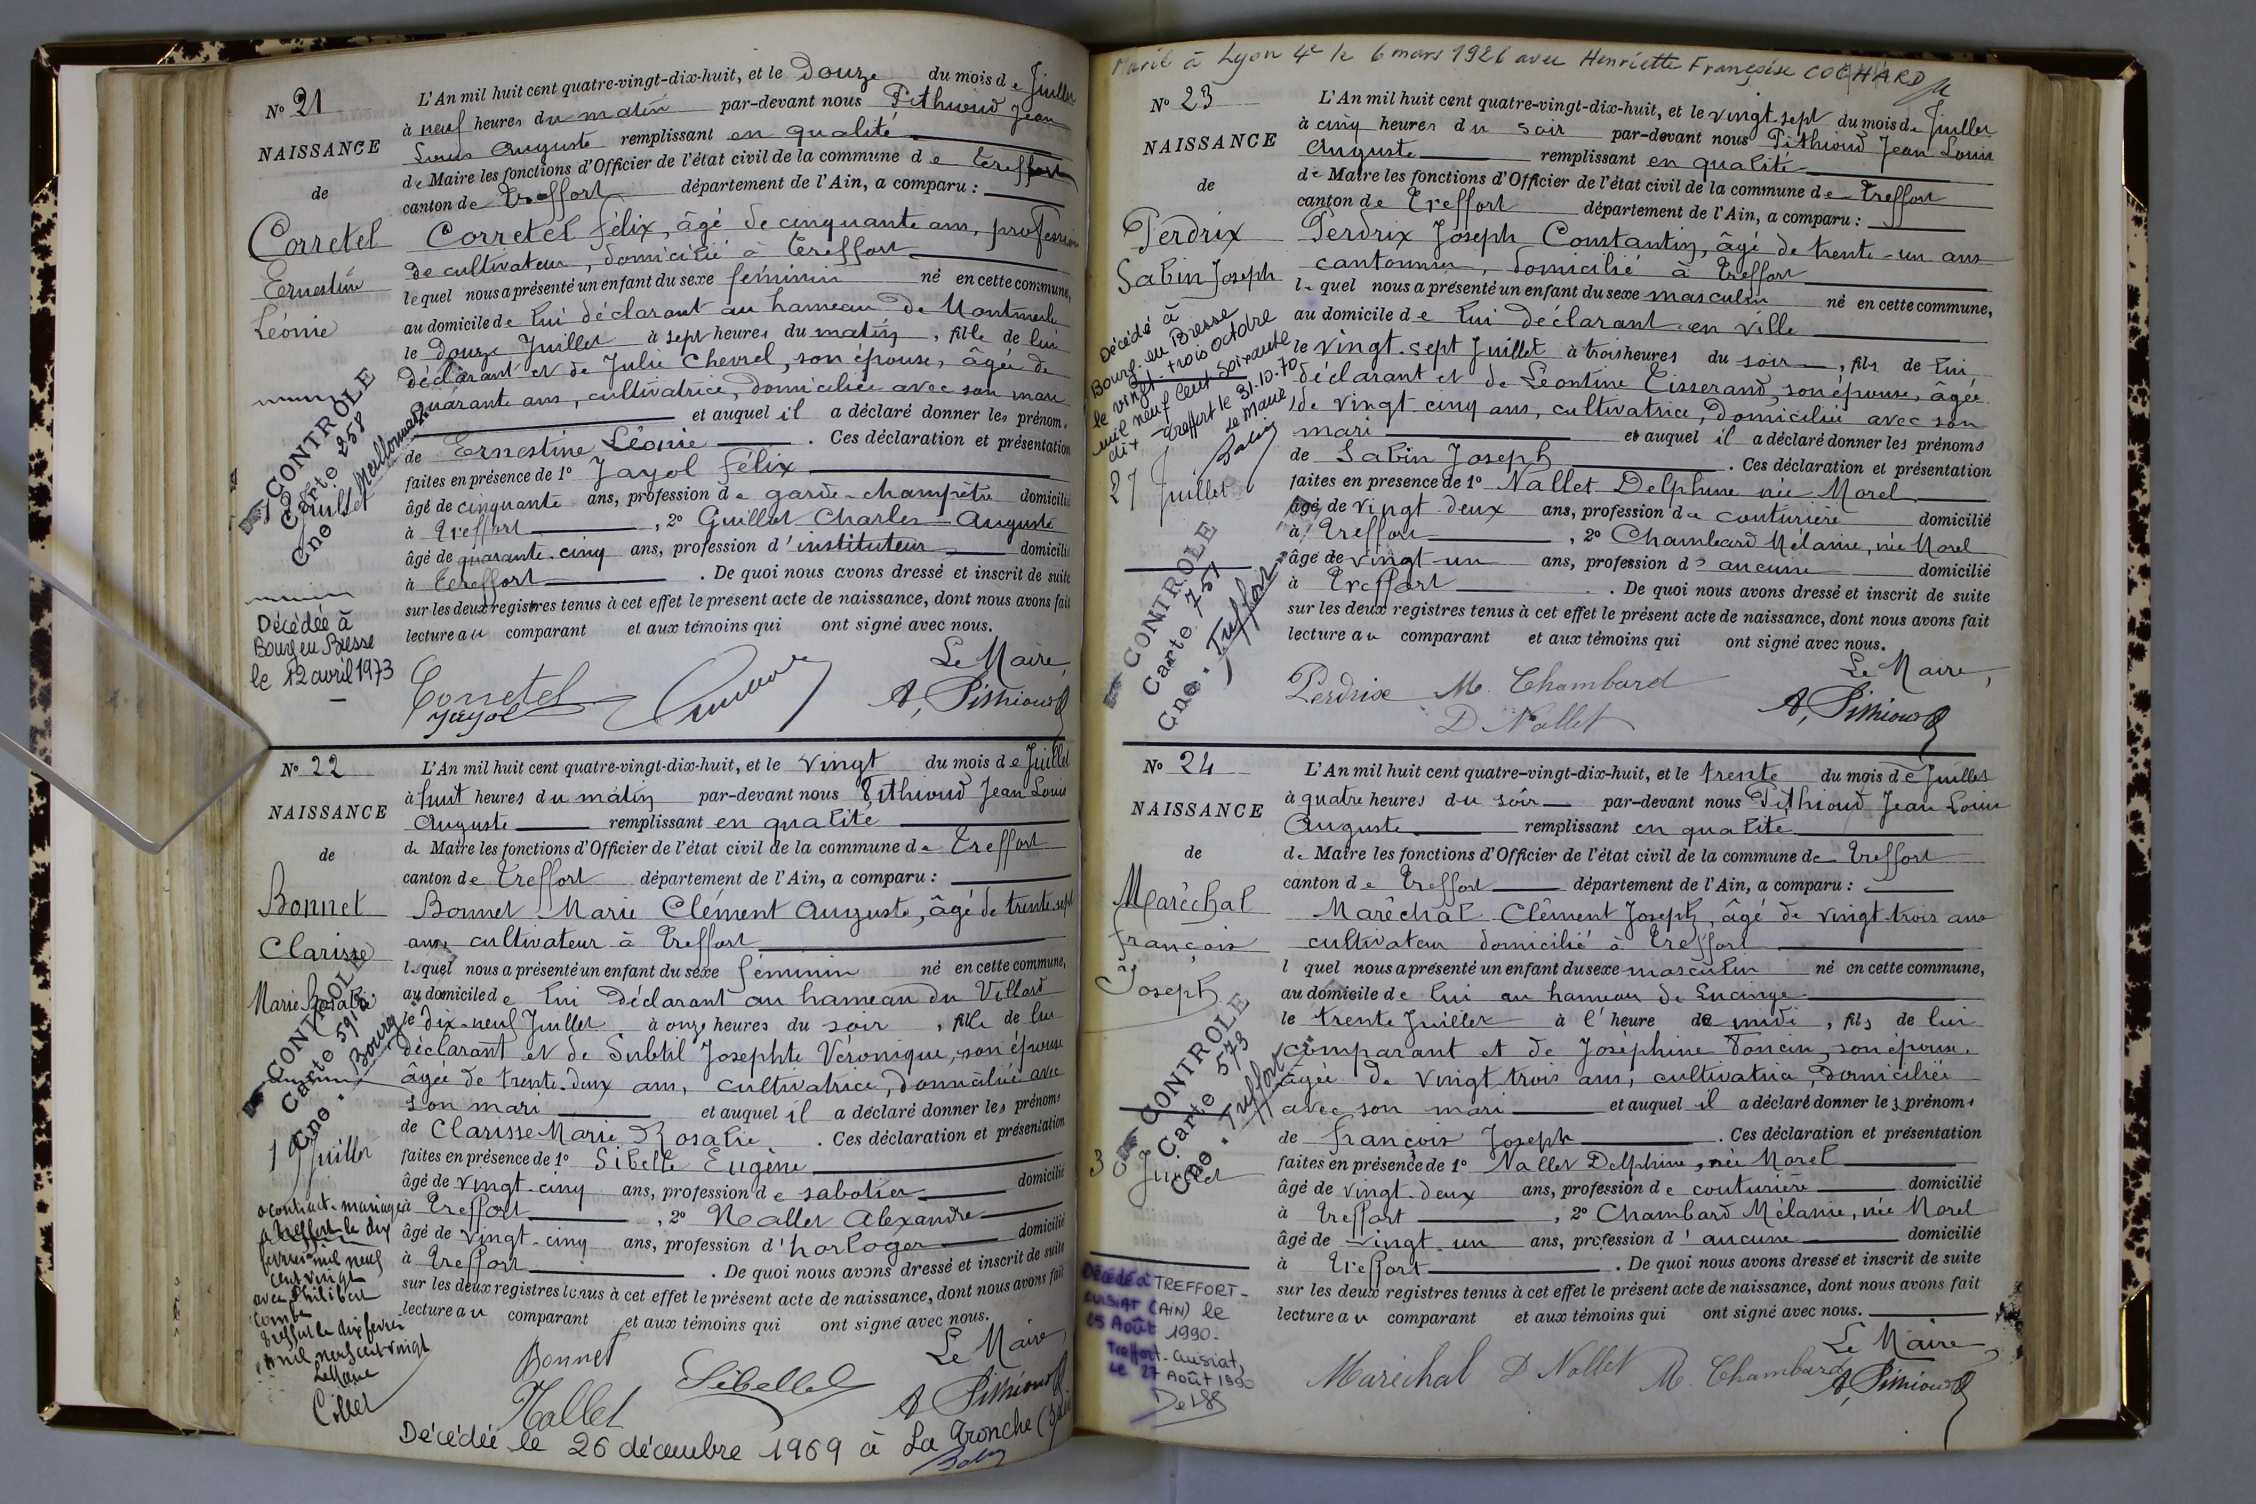 N° 21
NAISSANCE
de
Corretel
Ernestine
Léonie
CONTROLE
Carte 258
12 Juillet
Cne Meillonnas
Décédée à
Bourg en Bresse
le 12 avril 1973
L'An mil huit cent quatre-vingt-dix-huit, et le Douze du mois de Juillet
à neuf heures du matin par-devant nous Pithioud Jean
Louis Auguste remplissant en qualité
de Maire les fonctions d'Officier de l'état civil de la commune de Treffort
canton de Treffort département de l'Ain, a comparu :
Corretel Félix, âgé de cinquante ans, profession
de cultivateur, domicilié à Treffort
lequel nous a présenté un enfant du sexe féminin né en cette commune,
au domicile de lui déclarant au hameau de Montmerle
le douze Juillet à sept heures du matin, fille de lui
déclarant et de Julie Chevrel, son épouse, âgée de
quarante ans, cultivatrice, domiciliée avec son mari
et auquel il a déclaré donner les prénoms
de Ernestine Léonie . Ces déclaration et présentation
faites en présence de 1° Jayol Félix
âgé de cinquante ans, profession de garde-champêtre domicilié
à Treffort , 2° Guillot Charles Auguste
âgé de quarante-cinq ans, profession d'instituteur domicilié
à Treffort . De quoi nous avons dressé et inscrit de suite
sur les deux registres tenus à cet effet le présent acte de naissance, dont nous avons fait
lecture au comparant et aux témoins qui ont signé avec nous.
Le Maire,
Corretel
Jayol
A. Pithioud
N° 22
NAISSANCE
de
Bonnet
Clarisse
Marie Rosalie
CONTROLE
Carte 591
Cne. Bourg
19 Juillet
a contracté mariage
à Treffort le dix
février mil neuf
cent vingt
avec Philibert
Combe
Treffort le dix février
mil neuf cent vingt
Le Maire
L'An mil huit cent quatre-vingt-dix-huit, et le vingt du mois de Juillet
à huit heures du matin par-devant nous Pithioud Jean Louis
Auguste remplissant en qualité
de Maire les fonctions d'Officier de l'état civil de la commune de Treffort
canton de Treffort département de l'Ain, a comparu :
Bonnet Marie Clément Auguste, âgé de trente-sept
ans, cultivateur à Treffort
lequel nous a présenté un enfant du sexe féminin né en cette commune,
au domicile de lui déclarant au hameau du Villard
le dix-neuf Juillet à onze heures du soir, fille de lui
déclarant et de Subtil Josephte Véronique, son épouse
âgée de trente-deux ans, cultivatrice, domiciliée avec
son mari et auquel il a déclaré donner les prénoms
de Clarisse Marie Rosalie . Ces déclaration et présentation
faites en présence de 1° Sibelle Eugène
âgé de vingt-cinq ans, profession de sabotier domicilié
à Treffort , 2° Nallet Alexandre
âgé de vingt-cinq ans, profession d'horloger domicilié
à Treffort . De quoi nous avons dressé et inscrit de suite
sur les deux registres tenus à cet effet le présent acte de naissance, dont nous avons fait
lecture au comparant et aux témoins qui ont signé avec nous.
Le Maire,
Bonnet Sibelle
Nallet A Pithioud
Décédée le 26 décembre 1969 à La Tronche
Marié à Lyon 4e le 6 mars 1926 avec Henriette Françoise COCHARD
N° 23
NAISSANCE
de
Perdrix
Sabin Joseph
Décédé à
Bourg-en-Bresse
le vingt-trois octobre
mil neuf cent soixante
dix Treffort le 31.10.70
Le Maire,
27 Juillet
CONTROLE
Carte 751
Cne. Treffort
L'An mil huit cent quatre-vingt-dix-huit, et le vingt-sept du mois de Juillet
à cinq heures du soir par-devant nous Pithioud Jean Louis
Auguste remplissant en qualité
de Maire les fonctions d'Officier de l'état civil de la commune de Treffort
canton de Treffort département de l'Ain, a comparu :
Perdrix Joseph Constantin, âgé de trente-un ans
cantonnier, domicilié à Treffort
lequel nous a présenté un enfant du sexe masculin né en cette commune,
au domicile de lui déclarant en ville
le vingt-sept Juillet à trois heures du soir, fils de lui
déclarant et de Léontine Tisserand, son épouse, âgée
de vingt-cinq ans, cultivatrice, domiciliée avec son
mari et auquel il a déclaré donner les prénoms
de Sabin Joseph . Ces déclaration et présentation
faites en présence de 1° Nallet Delphine née Morel
âgé de vingt-deux ans, profession de couturière domicilié
à Treffort , 2° Chambard Mélanie, née Morel
âgé de vingt-un ans, profession d'aucune domicilié
à Treffort . De quoi nous avons dressé et inscrit de suite
sur les deux registres tenus à cet effet le présent acte de naissance, dont nous avons fait
lecture au comparant et aux témoins qui ont signé avec nous.
Le Maire,
Perdrix M. Chambard
D Nallet A. Pithioud
N° 24
NAISSANCE
de
Maréchal
François
Joseph
CONTROLE
Carte 573
Cne. Treffort
30 Juillet
Décédé à TREFFORT-
CUISIAT (AIN) le
25 Août 1990.
Treffort-Cuisiat,
Le 27 Août 1990
L'An mil huit cent quatre-vingt-dix-huit, et le trente du mois de Juillet
à quatre heures du soir par-devant nous Pithioud Jean Louis
Auguste remplissant en qualité
de Maire les fonctions d'Officier de l'état civil de la commune de Treffort
canton de Treffort département de l'Ain, a comparu :
Maréchal Clément Joseph, âgé de vingt-trois ans
cultivateur domicilié à Treffort
l quel nous a présenté un enfant du sexe masculin né en cette commune,
au domicile de lui au hameau de Lucinge
le trente Juillet à l'heure de midi, fils de lui
comparant et de Joséphine Poncin, son épouse,
âgée de vingt-trois ans, cultivatrice, domiciliée
avec son mari et auquel il a déclaré donner les prénoms
de François Joseph . Ces déclaration et présentation
faites en présence de 1° Nallet Delphine, née Morel
âgé de vingt-deux ans, profession de couturière domicilié
à Treffort , 2° Chambard Mélanie, née Morel
âgé de vingt-un ans, profession d'aucune domicilié
à Treffort . De quoi nous avons dressé et inscrit de suite
sur les deux registres tenus à cet effet le présent acte de naissance, dont nous avons fait
lecture au comparant et aux témoins qui ont signé avec nous.
Le Maire,
Maréchal D Nallet M. Chambard A. Pithioud